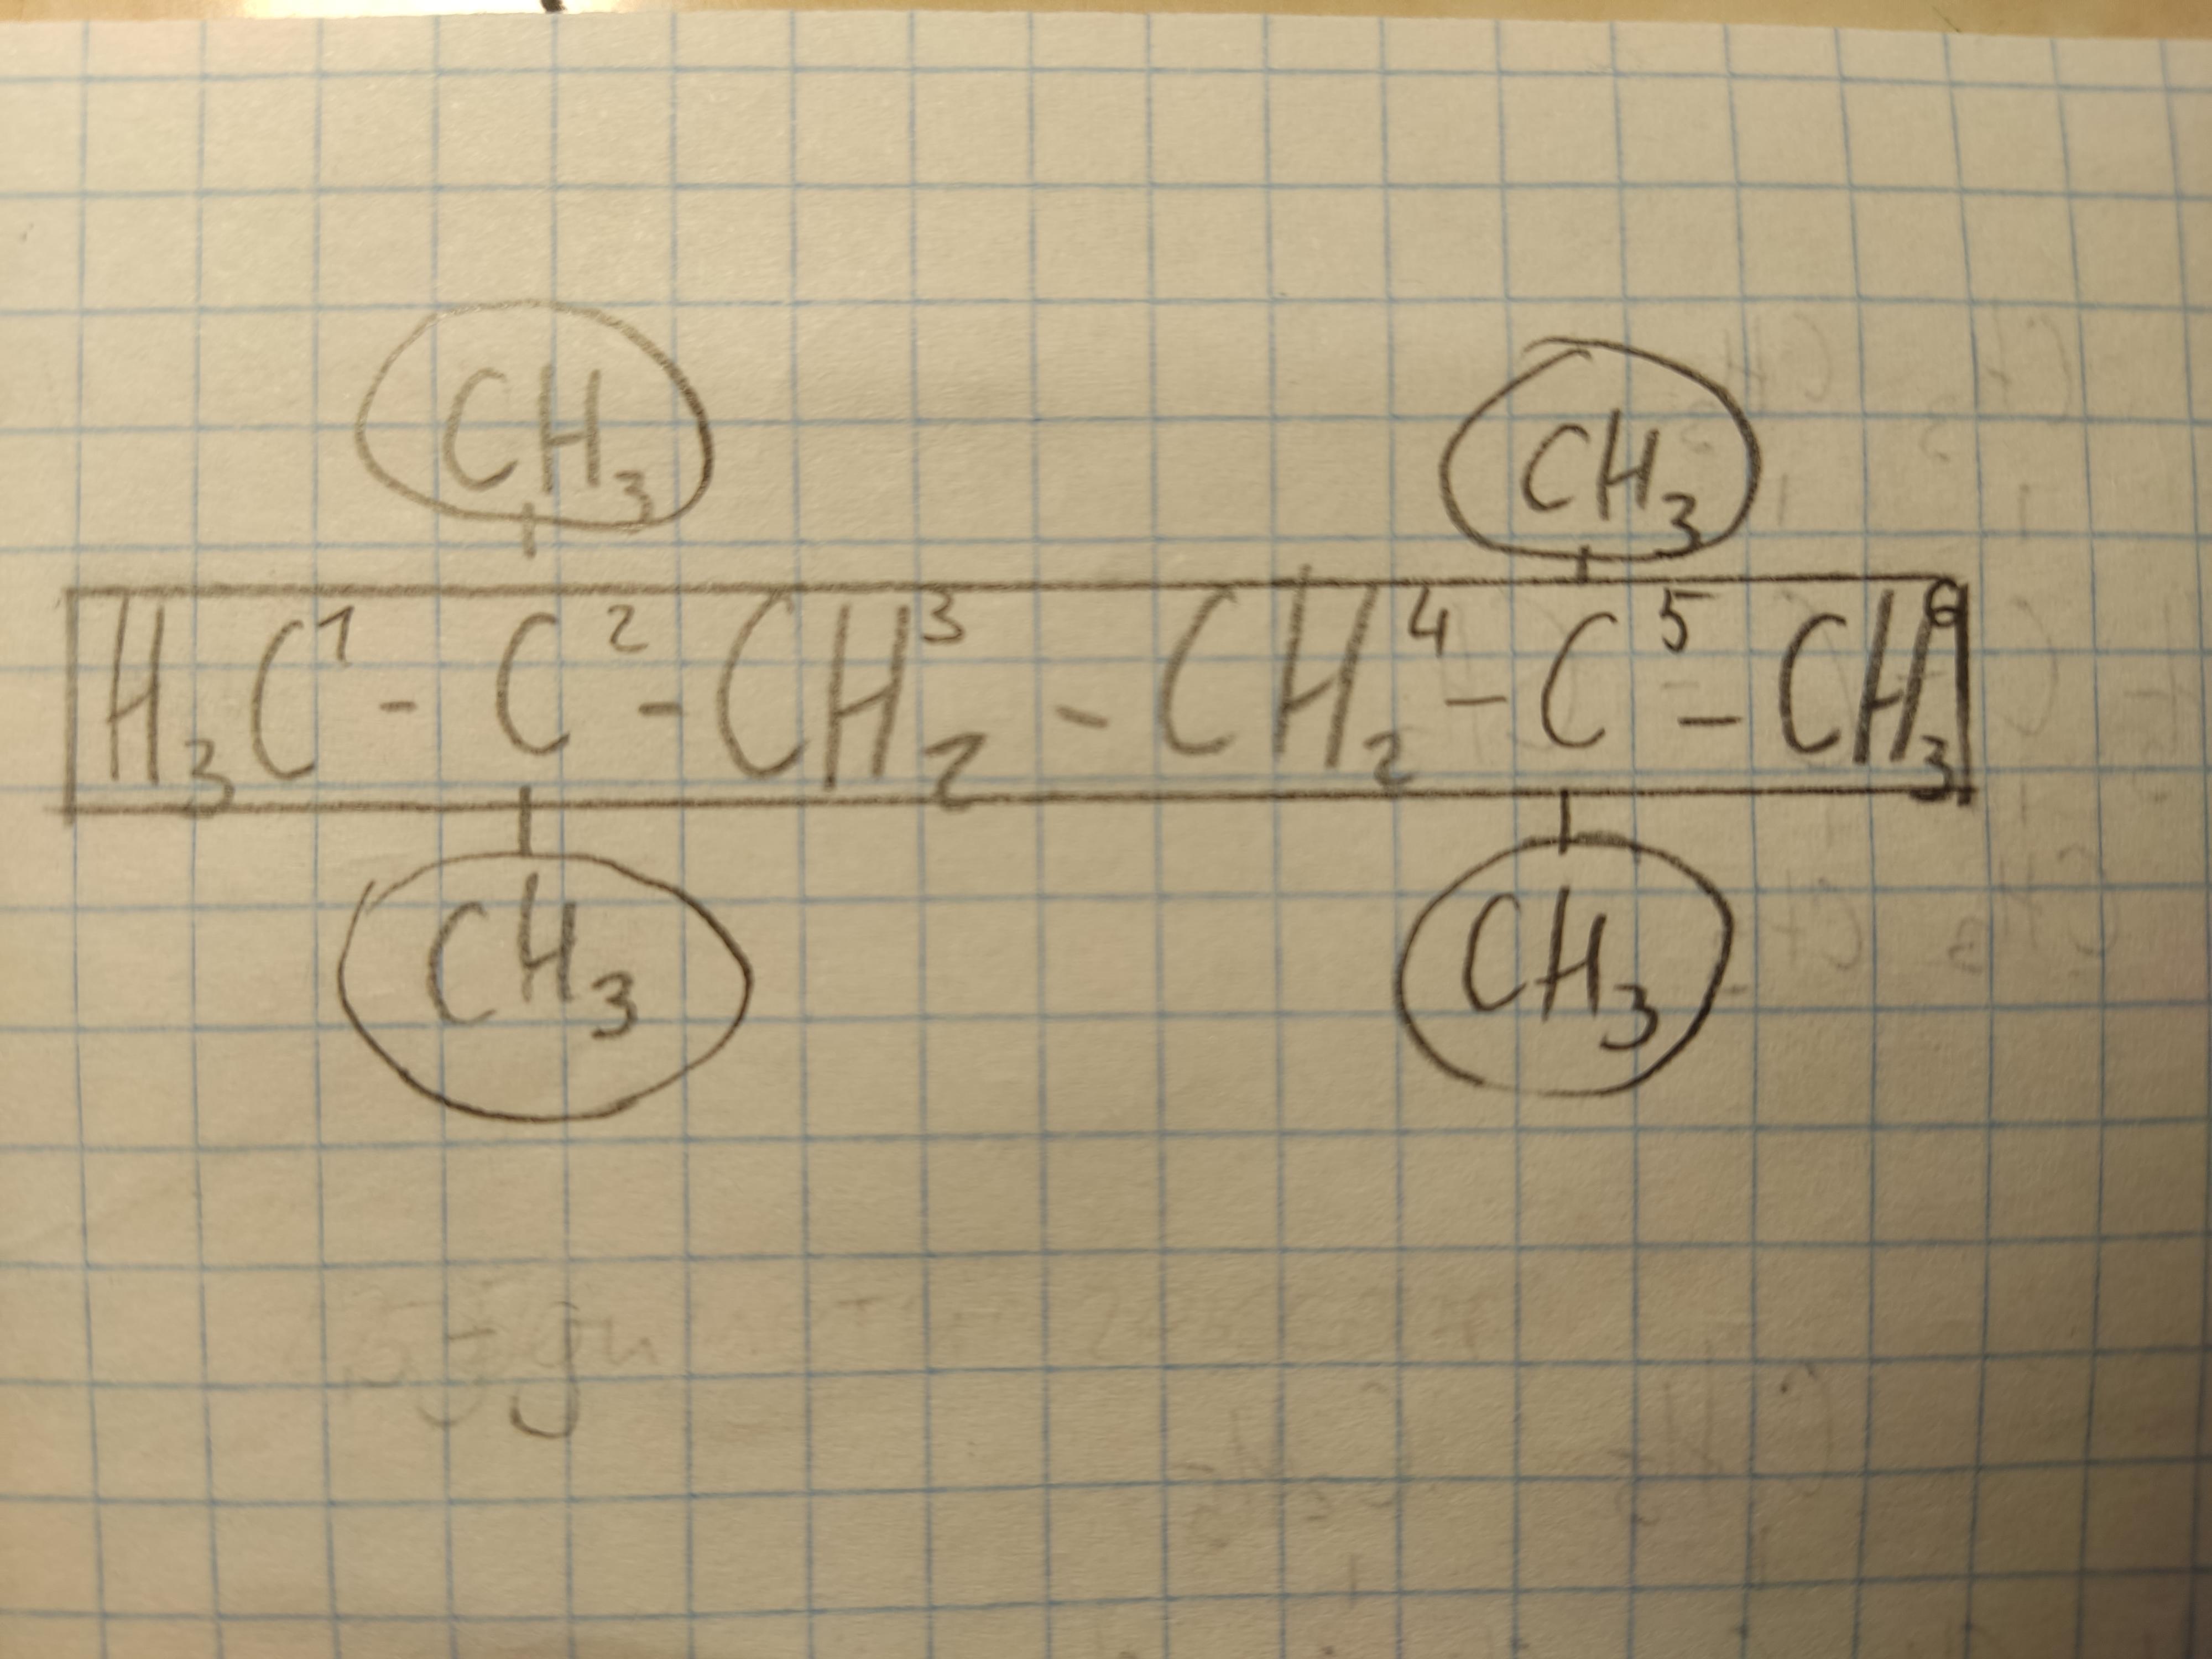 CH₃ CH₃
H₃C¹ - C² - CH₂³ - CH₂⁴ - C⁵ - CH₃⁶
CH₃ CH₃